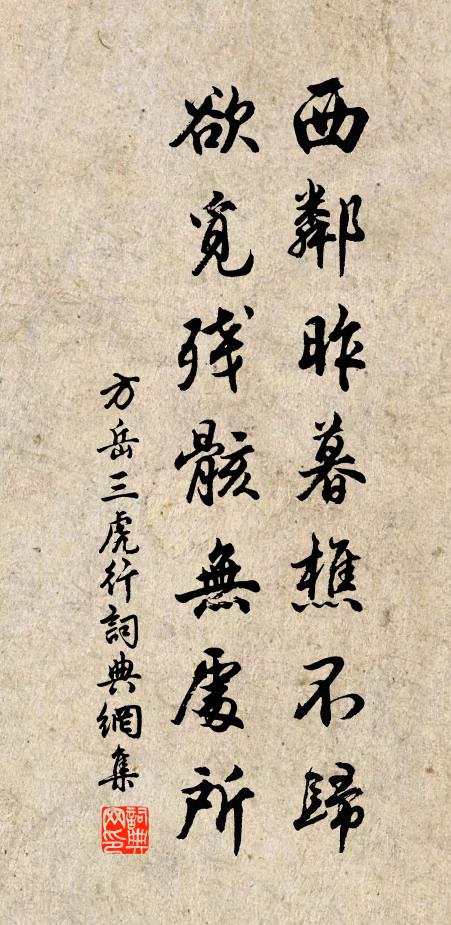 西鄰昨暮樵不歸
欲覓残骸無處所
方岳三虎行詞典網集
詞典网印